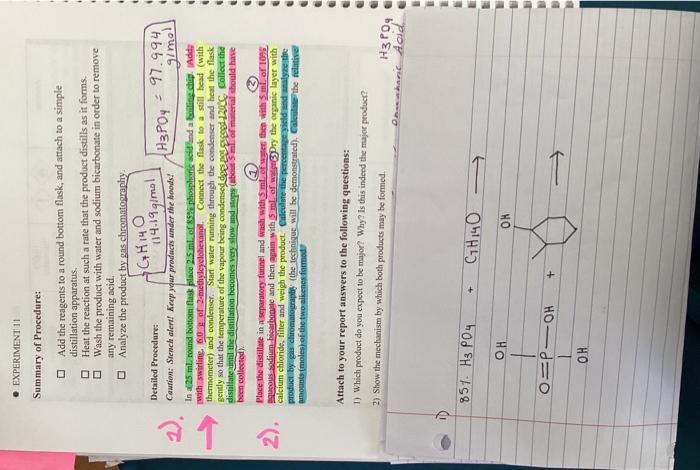 ● EXPERIMENT 11
Summary of Procedure:
□ Add the reagents to a round bottom flask, and attach to a simple
distillation apparatus.
□ Heat the reaction at such a rate that the product distills as it forms.
□ Wash the product with water and sodium bicarbonate in order to remove
any remaining acid.
□ Analyze the product by gas chromatography.
C7H14O
114.19g/mol
H3PO4 = 97.994
g/mol
Detailed Procedure:
Caution: Stench alert! Keep your products under the hoods!
2).
In a 25 mL round bottom flask place 2.5 mL of 85% phosphoric acid and a boiling chip. Add,
with swirling, 6.0 g of 2-methylcyclohexanol. Connect the flask to a still head (with
thermometer) and condenser. Start water running through the condenser and heat the flask
gently so that the temperature of the vapour being condensed does not exceed 120°C. Collect the
distillate until the distillation becomes very slow and stops (about 5 mL of material should have
been collected).
2).
① ②
Place the distillate in a separatory funnel and wash with 5 mL of water then with 5 mL of 10%
aqueous sodium bicarbonate and then again with 5 mL of water. ③ Dry the organic layer with
calcium chloride, filter and weigh the product. Calculate the percentage yield and analyze the
product by gas chromatography (the technique will be demonstrated). Calculate the relative
amounts (moles) of the two alkenes formed.
Attach to your report answers to the following questions:
1) Which product do you expect to be major? Why? Is this indeed the major product?
2) Show the mechanism by which both products may be formed.
H3PO4
Acid
1)
85% H3PO4 + C7H14O →
OH OH
O=P—OH + →
OH